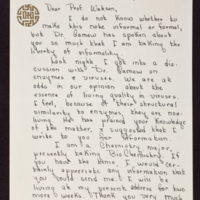 Dear Prof. Watson,
I do not know whether to
make this note informal or formal
but Dr. Gamow has spoken about
you so much that I am taking the
liberty of informality.
Last night I got into a dis-
cussion with Dr. Gamow on
enzymes & viruses. We are at
odds in our opinion about the
essence of living quality in viruses.
I feel, because of their structural
similarity to enzymes, they are non-
living. He has praised your knowledge
of the matter, & suggested that I
write to you for information.
I am a Chemistry major,
presently taking BioChemistry. If
you have the time, I would cer-
tainly appreciate any information that
you could send me. I will be
living at my present address for two
more weeks. Thank you very much